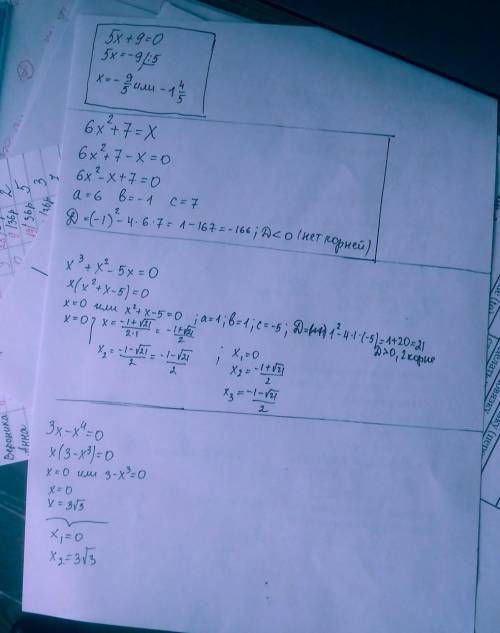 5x+9=0
5x=-9/:5
x=-9/5 или -1 4/5
6x²+7=x
6x²+7-x=0
6x²-x+7=0
a=6 в=-1 c=7
D=(-1)²-4·6·7=1-167=-166; D<0 (нет корней)
x³+x²-5x=0
x(x²+x-5)=0
x=0 или x²+x-5=0 ; a=1; в=1; c=-5; D= 1²-4·1·(-5)=1+20=21
D>0, 2 корне
x=0; x=(-1+√21)/(2·1)=(-1+√21)/2
x₂=(-1-√21)/2=(-1-√21)/2 ; x₁=0
x₂=(-1+√21)/2
x₃=(-1-√21)/2
3x-x⁴=0
x(3-x³)=0
x=0 или 3-x³=0
x=0
x=3√3
x₁=0
x₂=3√3
Вероника
Анна